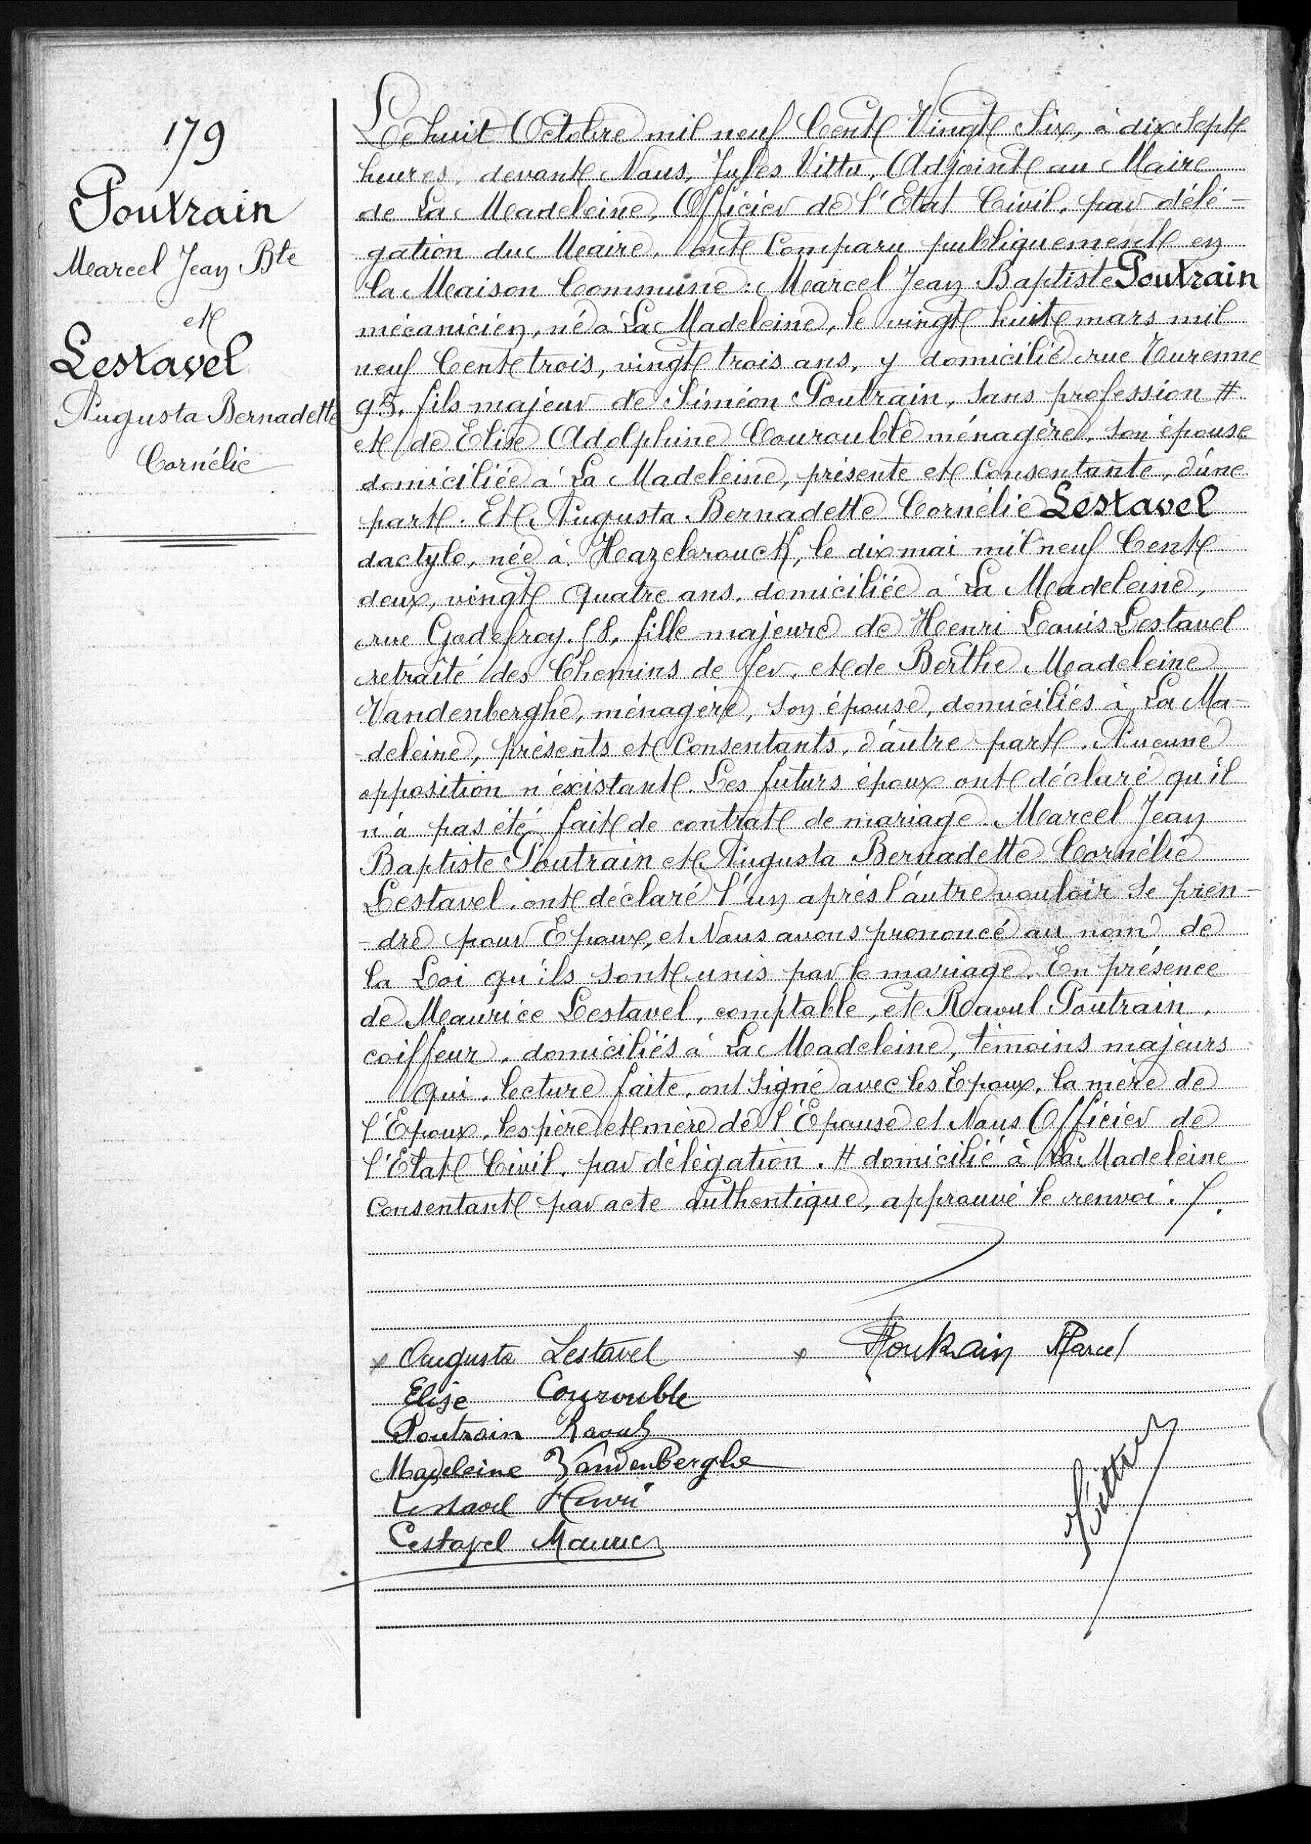 179
Poutrain
Marcel Jean Bte
et
Lestavel
Augusta Bernadette
Cornélie
Le huit Octobre mil neuf Cent Vingt Six, à dix sept
heures, devant Nous, Jules Vittu, Adjoint au Maire
de La Madeleine, Officier de l'Etat Civil, par délé-
gation du Maire, ont comparu publiquement en
la Maison Commune : Marcel Jean Baptiste Poutrain
mécanicien, né à La Madeleine, le vingt huit mars mil
neuf Cent trois, vingt trois ans, y domicilié rue Turenne
95, fils majeur de Siméon Poutrain, sans profession #
et de Elise Adolphine Courouble ménagère, son épouse
domiciliée à La Madeleine, présente et consentante, d'une
part. Et Augusta Bernadette Cornélie Lestavel
dactylo, née à Hazebrouck, le dix mai mil neuf Cent
deux, vingt quatre ans, domiciliée à La Madeleine,
rue Godefroy, 58, fille majeure de Henri Louis Lestavel
retraité des Chemins de fer, et de Berthe Madeleine
Vandenberghe, ménagère, son épouse, domiciliés à La Ma-
-deleine, présents et consentants, d'autre part. Aucune
opposition n'éxistant. Les futurs époux ont déclaré qu'il
n'a pas été fait de contrat de mariage. Marcel Jean
Baptiste Poutrain et Augusta Bernadette Cornélie
Lestavel, ont déclaré l'un après l'autre vouloir se pren-
-dre pour Epoux, et Nous avons prononcé au nom de
la Loi qu'ils sont unis par le mariage. En présence
de Maurice Lestavel, comptable, et Raoul Poutrain,
coiffeur, domiciliés à La Madeleine, témoins majeurs
qui, lecture faite, ont signé avec les Epoux, la mère de
l'Epoux, les père et mère de l'Epouse et Nous Officier de
l'Etat Civil, par délégation. # domicilié à La Madeleine
consentant par acte authentique, approuvé le renvoi. /.
x Augusta Lestavel x Poutrain Marcel
Elise Courouble
Poutrain Raoul
Madeleine Vandenberghe
Lestavel Henri
Lestavel Maurice
Vittu